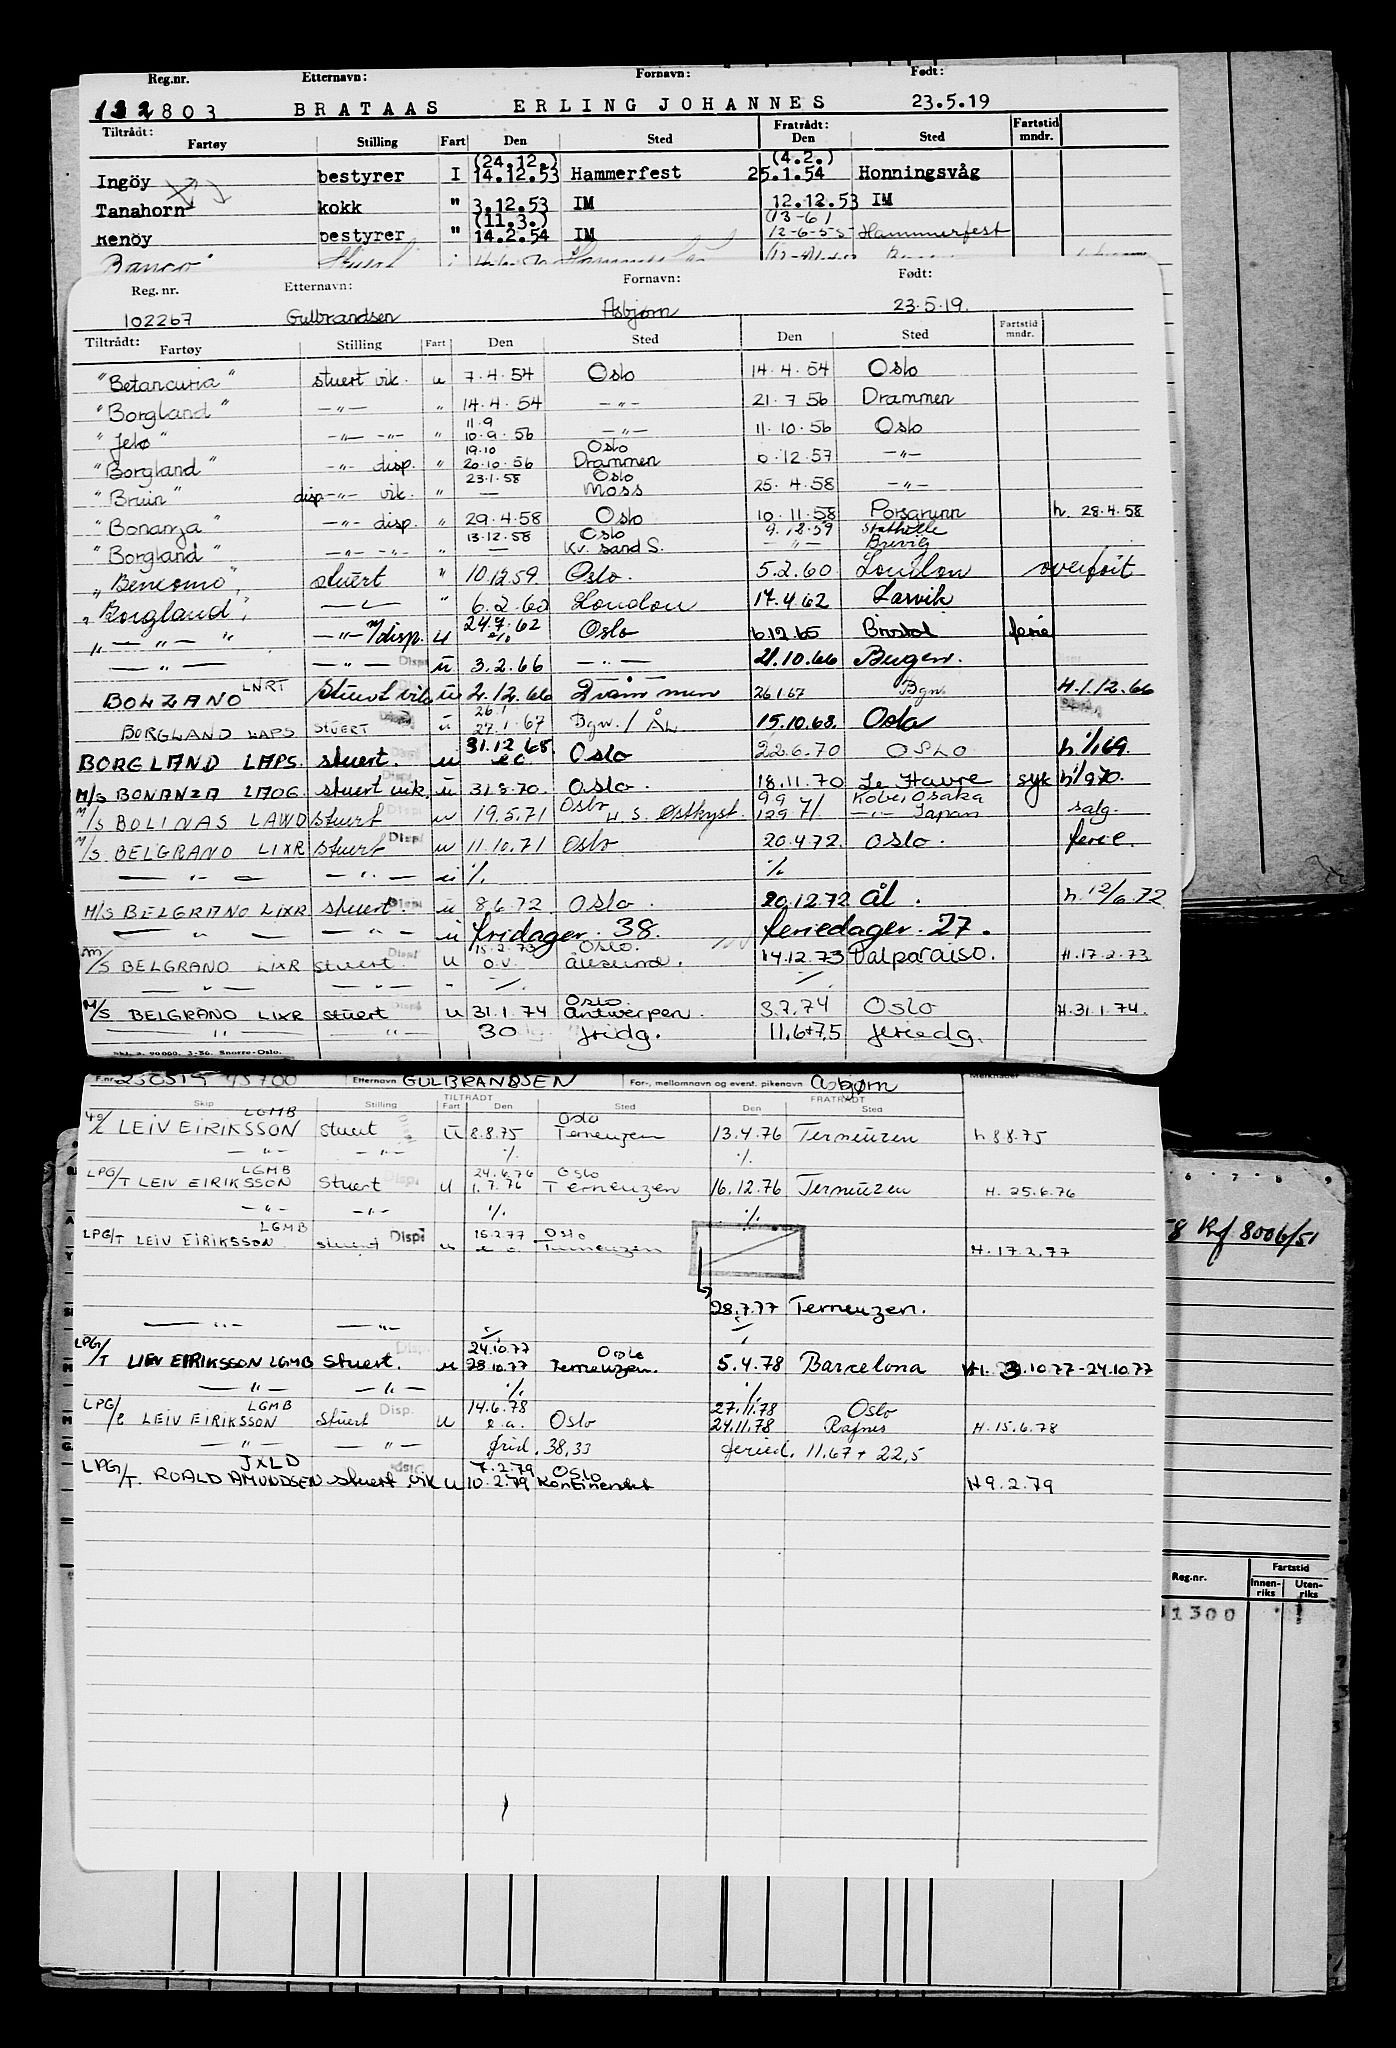 Reg.nr. Etternavn: Fornavn: Født:
132803 BRATAAS ERLING JOHANNES 23.5.19
Tiltrådt: Fratrådt: Fartstid
Fartøy Stilling Fart Den Sted Den Sted mndr.
(24.12.) (4.2.)
Ingöy bestyrer I 14.12.53 Hammerfest 25.1.54 Honningsvåg
Tanahorn kokk " 3.12.53 IM 12.12.53 IM
(11.3.) (13-6)
Renöy bestyrer " 14.2.54 IM 12-6-55 Hammerfest
Banco
Reg. nr. Etternavn: Fornavn: Født:
102267 Gulbrandsen Asbjørn 23.5.19.
Tiltrådt: Fartstid
Fartøy Stilling Fart Den Sted Den Sted mndr.
"Betancuria" stuert vik. u 7.4.54 Oslo 14.4.54 Oslo
"Borgland" —"— " 14.4.54 —"— 21.7.56 Drammen
11.9
"Jelø" —"— —"— " 10.9.56 —"— 11.10.56 Oslo
19.10 Oslo
"Borgland" —"— disp. " 20.10.56 Drammen 0.12.57 —"—
23.1.58 Oslo
"Bruin" disp —"— vik. " — Moss 25.4.58 —"—
"Bonanza" —"— disp. " 29.4.58 Oslo 10.11.58 Porsgrunn h. 28.4.58
13.12.58 Oslo 9.12.59 Stathelle
"Borgland" —"— —"— " — Kr. sand S. —"— Brevig
"Bencomo" stuert " 10.12.59 Oslo. 5.2.60 London overført
"Borgland" —"— " 6.2.60 London 17.4.62 Larvik
—"— " —"— m/disp. u 24.7.62 Oslo 6.12.65 Bristol ferie
—"— —"— Disp ü 3.2.66 —"— 21.10.66 Bergen.
BOLZANO LNRT Stuert vik ü 2.12.66 Drammen 26.1.67 Bgn. H.1.12.66
26.1
BORGLAND LAPS STUERT ü 27.1.67 Bgn. / ÅL 15.10.68. Oslo
BORGLAND LAPS. stuert. u 31.12.68. Oslo 22.6.70 OSLO h. 1/1.69.
M/S BONANZA LAOG. stuert vik. ü 31.8.70. Oslo. 18.11.70 Le Havre syk h 1/9 70.
M/S BOLINAS LAWD Stuert u 19.5.71 Oslo U.S. Østkyst. 9.9 12.9 71 Kobe, Osaka —"— Japan salg.
M/S BELGRANO LIXR Stuert Disp u 11.10.71 Oslo 20.4.72. Oslo. ferie.
— " — —"— ü %. %
M/S BELGRANO LIXR stuert. Disp ü 8.6.72. Oslo. 20.12.72 Ål. h. 12/6.72
— " — — " — ü fridager. 38. feriedager. 27.
15.2.73 Oslo.
M/S BELGRANO LIXR stuert. Disp u o.v. Ålesund. 14.12.73 Valparaiso. H.17.2.73
— " — —"— " %. %
Oslo.
M/S BELGRANO LIXR stuert u 31.1.74 Antwerpen. 3.7.74 Oslo H.31.1.74.
" —"— 30 fridg. 11.6+7,5 feriedg.
Skj. 2. 90000. 3-56. Snorre-Oslo.
F.nr. 230519 45700 Etternavn GULBRANDSEN For-, mellomnavn og event. pikenavn Asbjørn Merknader
TILTRÅDT FRATRÅDT
Skip Stilling Fart Den Sted Den Sted
LGMB Oslo
LEIV EIRIKSSON Stuert Ü 8.8.75 Terneuzen 13.4.76 Terneuzen h 8 8.75
—"— —"— %. %.
LGMB 24.6.76 Oslo
LPG/T LEIV EIRIKSSON Stuert Disp u 1.7.76 Terneuzen 16.12.76 Terneuzen H. 25.6.76
—"— —"— %. %.
LGMB 15.2.77 Oslo
LPG/T LEIV EIRIKSSON stuert Disp u e.a. Terneuzen H.17.2.77
28.7.77 Terneuzen.
—"— —"— % %
24.10.77 Oslo
LPG/T LIEV EIRIKSSON LGMB Stuert. Disp. u 28.10.77 Terneuzen. 5.4.78 Barcelona H. 3.10.77-24.10.77
—"— —"— %. %.
LGMB 14.6.78 27.11.78 Oslo
LPG/t LEIV EIRIKSSON Stuert Disp. u e.a. Oslo 24.11.78 Rafnes H.15.6.78
—"— —"— frid. 38,33 feried. 11.67 + 22,5
JXLD 7.2.79 Oslo
LPG/T. ROALD AMUNDSEN stuert vik u 10.2.79 Kontinentet H 9.2.79
6 7 8 9
58 Kf 8006/51
Reg.nr. Fartstid
Innenriks Utenriks
1300